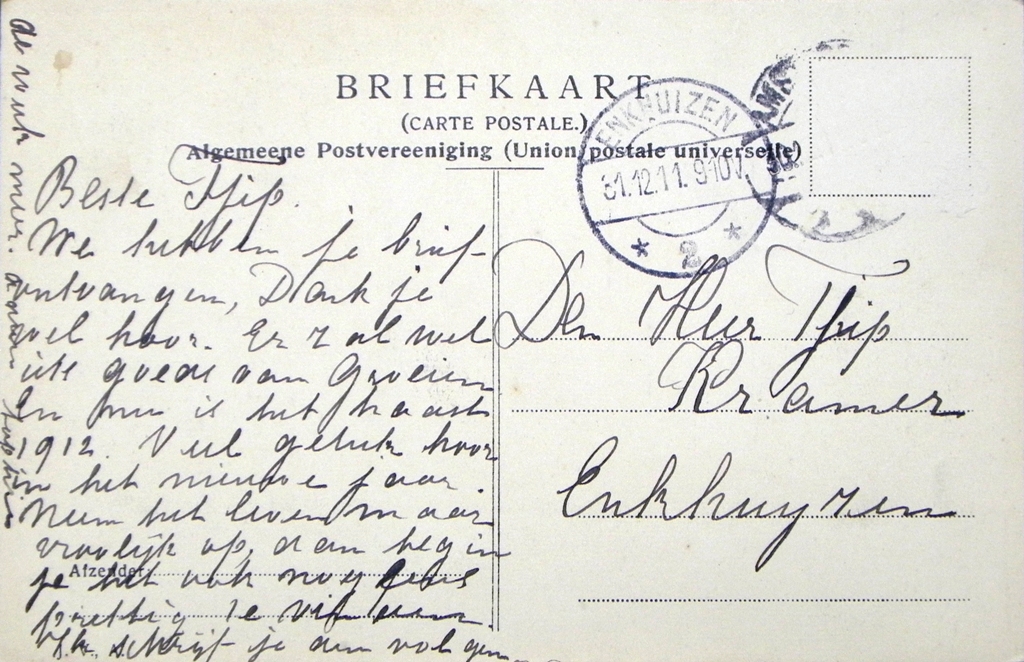 BRIEFKAART
(CARTE POSTALE.)
Algemeene Postvereeniging (Union postale universelle)
ENKHUIZEN
31.12.11. 9-10V.
2
Beste Tjip.
We hebben je brief
ontvangen, Dank je
wel hoor. Er zal wel
iets goeds van groeien
En nu is het haast
1912. Veel geluk hoor
in het nieuwe jaar.
Neem het leven maar
vroolijk op, dan begin
je het ook nog eens
prettig te vinden
Ik schrijf je den volgen
de week meer.
Afzender:
Den Heer Tjip
Kramer
Enkhuyzen